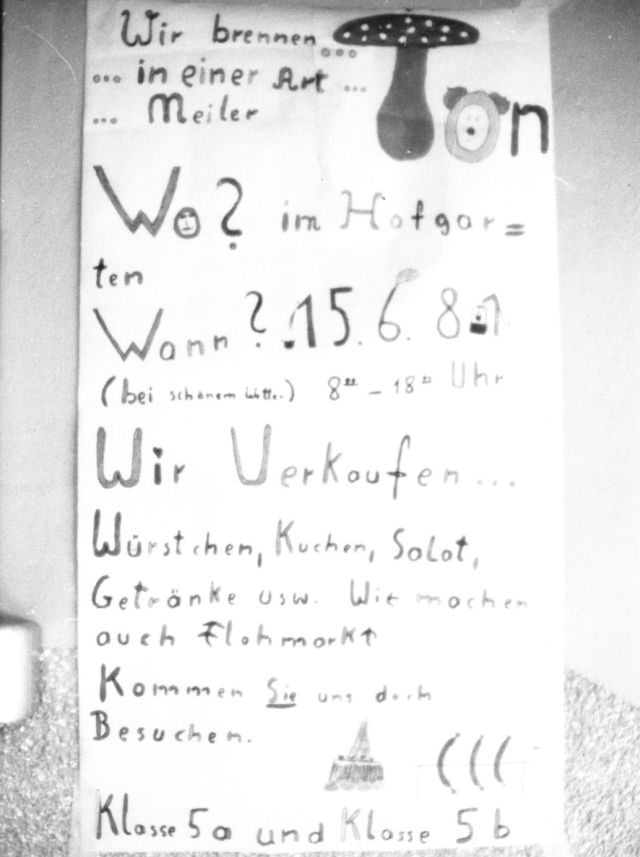 Wir brennen ...
... in einer Art ... Ton
... Meiler
Wo? im Hofgar=
ten
Wann? 15. 6. 81
(bei schönem Wetter) 8⁰⁰ – 18⁰⁰ Uhr
Wir Verkaufen ...
Würstchen, Kuchen, Salat,
Getränke usw. Wir machen
auch Flohmarkt
Kommen Sie uns doch
Besuchen.
Klasse 5a und Klasse 5b